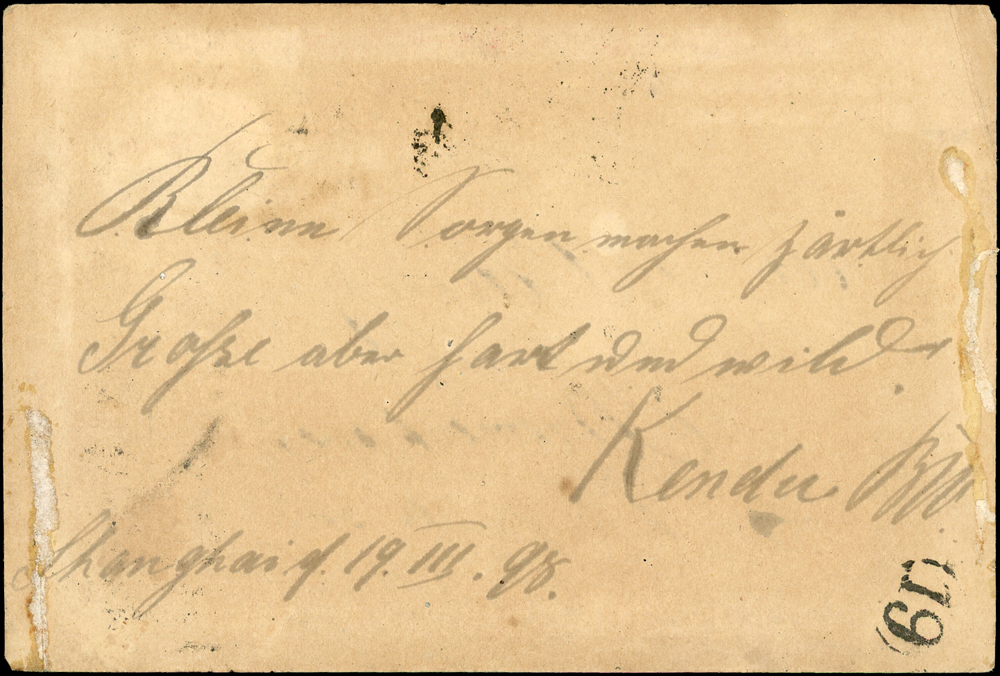 Kleine Sorgen machen zärtlich
Große aber hart und wild.
Shanghai d. 19. III. 98.